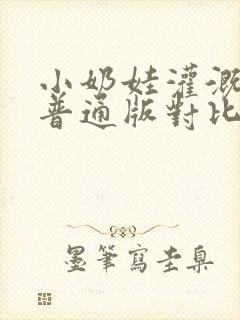 小奶娃灌溉
普通版對比
墨筆寫圭臬